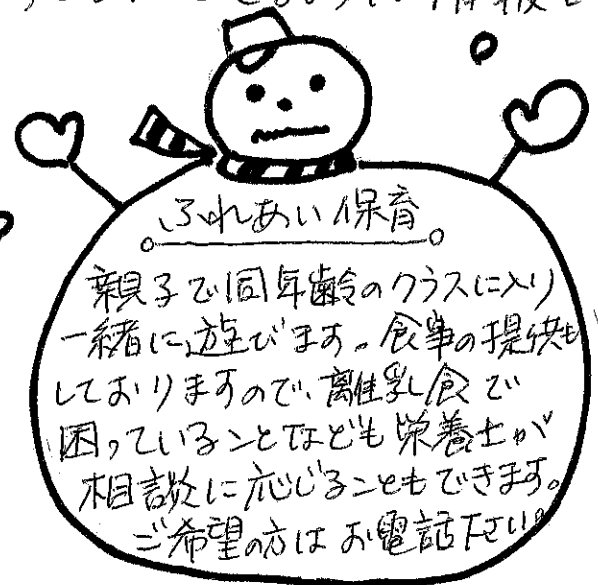 情報を
ふれあい保育
親子で同年齢のクラスに入り
一緒に遊びます。食事の提供も
しておりますので、離乳食で
困っていることなども栄養士が
相談に応じることもできます。
ご希望の方はお電話下さい。